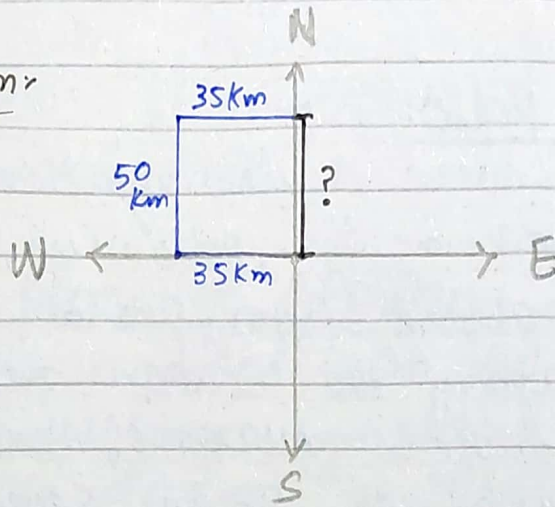 N
n:
35Km
50
Km
?
W
E
35Km
S